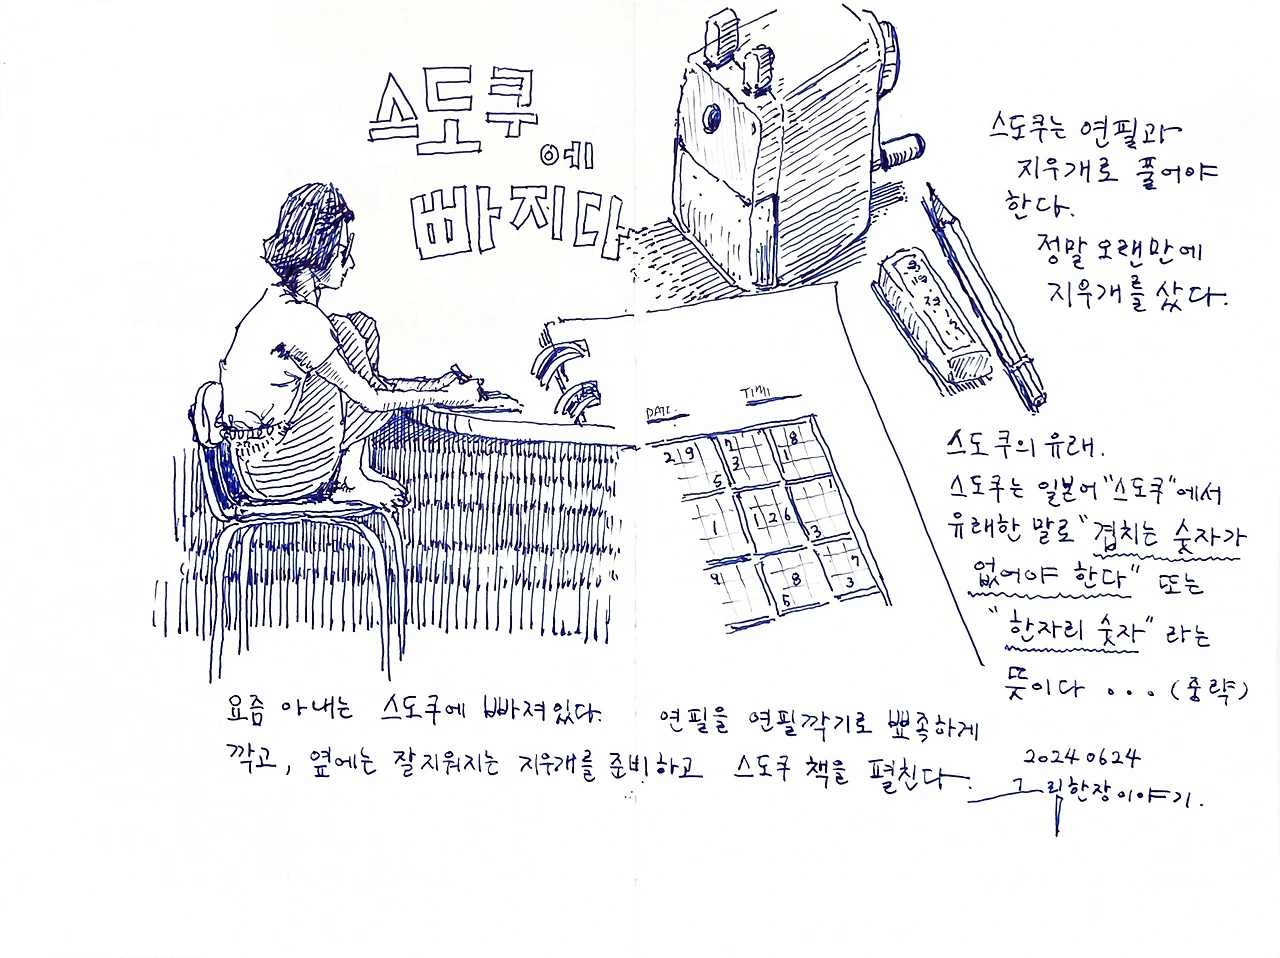 스도쿠
에
빠지다
스도쿠는 연필과
지우개로 풀어야
한다.
정말 오랜만에
지우개를 샀다.
DATE.
TIMI
2 9 7 8
3 1
5 1
1 1 2 6
3
9 8 7
5 3
스도쿠의 유래.
스도쿠는 일본어 "스도쿠"에서
유래한 말로 "겹치는 숫자가
없어야 한다" 또는
"한자리 숫자" 라는
뜻이다 ... (중략)
요즘 아내는 스도쿠에 빠져있다. 연필을 연필깎기로 뾰족하게
깎고, 옆에는 잘지워지는 지우개를 준비하고 스도쿠 책을 펼친다.
20240624
그림한장이야기.